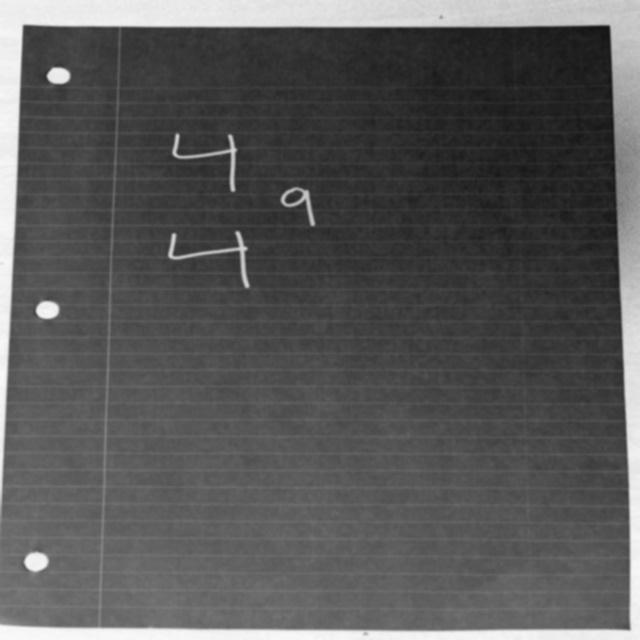 4
9
4